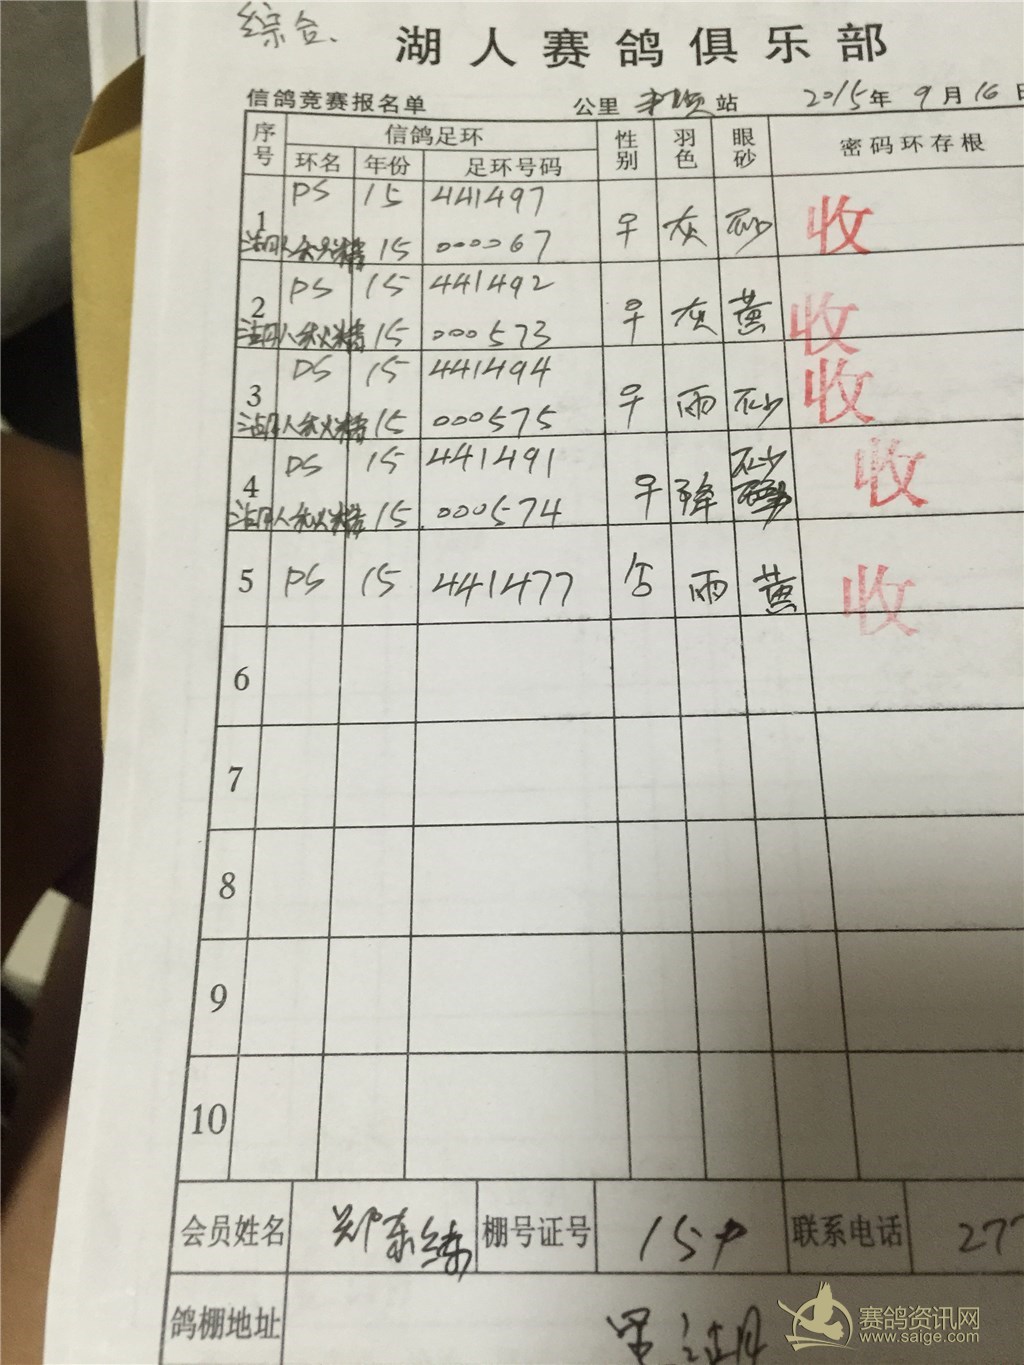 综合.
湖人赛鸽俱乐部
信鸽竞赛报名单 公里 站 2015年9月16日
序号 信鸽足环 性别 羽色 眼砂 密码环存根
环名 年份 足环号码
1 DS 15 441497 早 灰 砂 收
湖人秋火精 15 000067
2 DS 15 441492 早 灰 黄 收
湖人秋火精 15 000573
3 DS 15 441494 早 雨 砂 收
湖人秋火精 15 000575
4 DS 15 441491 早 绛 砂 收
湖人秋火精 15 000574
5 DS 15 441477 雨 黄 收
6
7
8
9
10
会员姓名 郑 棚号证号 联系电话 277
鸽棚地址
赛鸽资讯网
www.saige.com